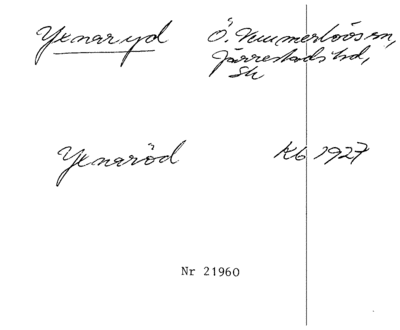 Ynnaryd Ö. Nummerlövs sn,
Järrestads hd,
Sk
Ynnaröd Kb 1927
Nr 21960